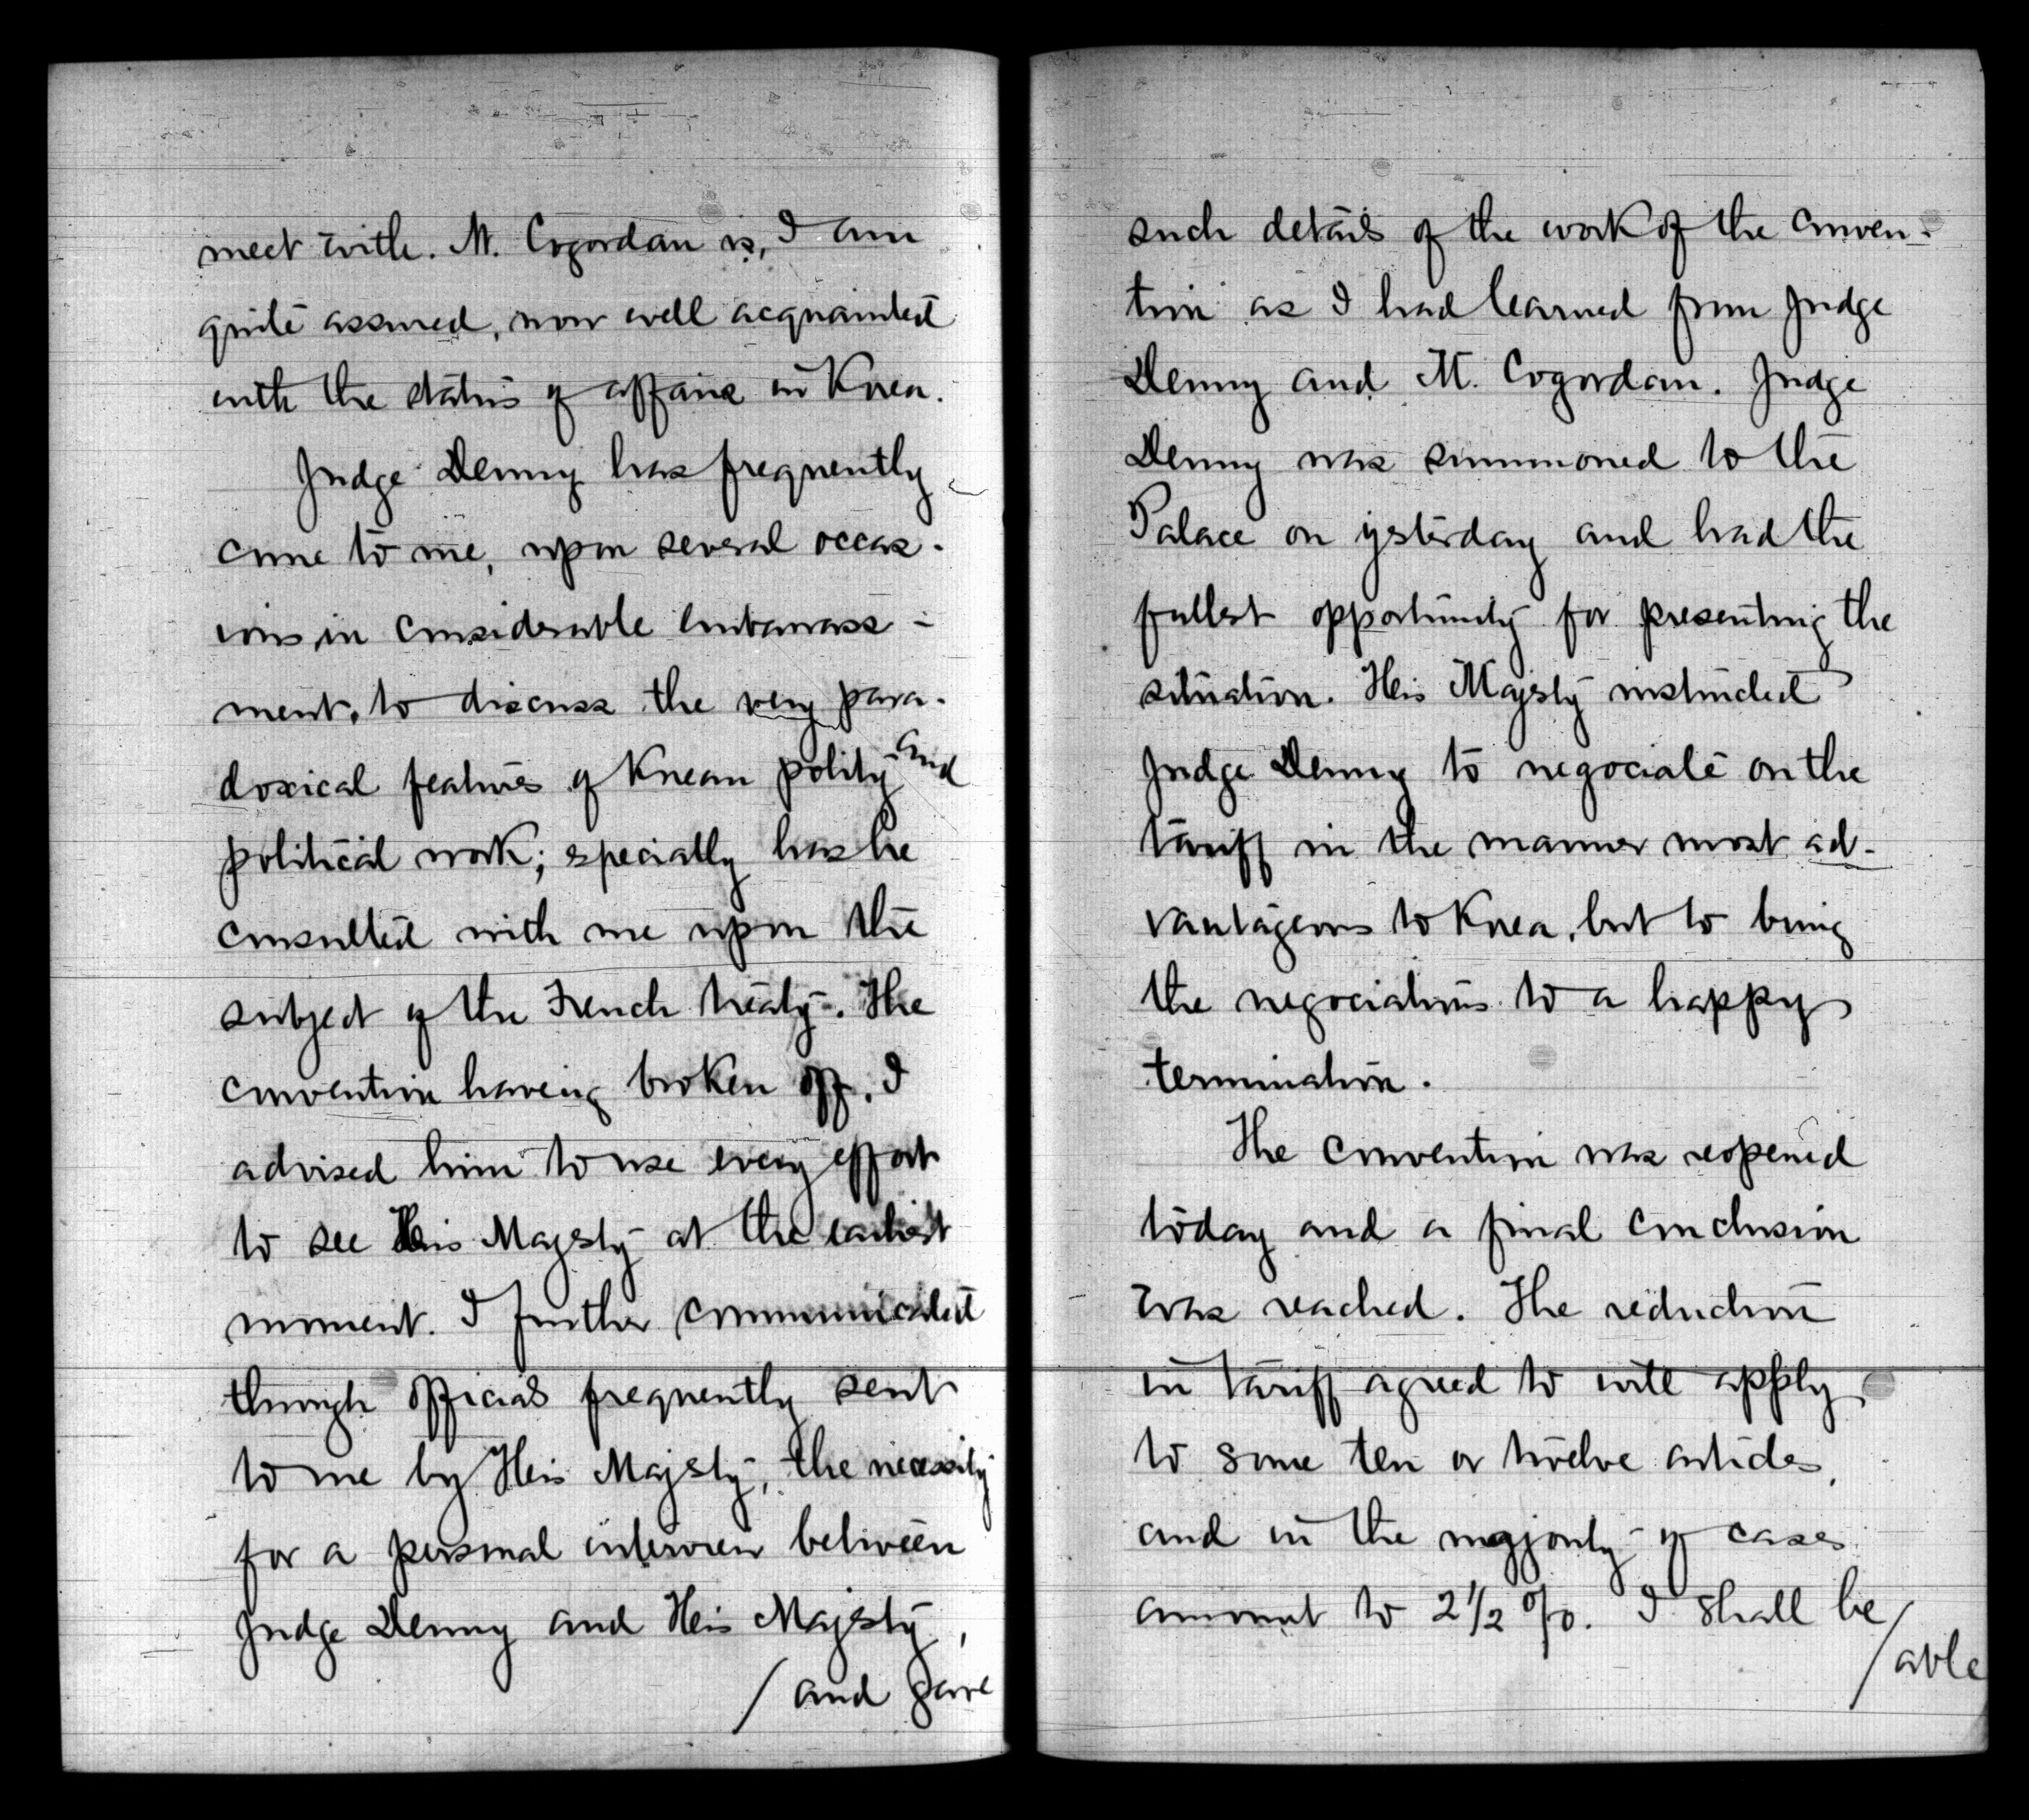 meet with. M. Cogordan is, I am
quite assured, now well acquainted
with the status of affairs in Korea.
Judge Denny has frequently
come to me, upon several occas-
ions in considerable embarrass-
ment, to discuss the very para-
doxical features of Korean polity and
political work; specially has he
consulted with me upon the
subject of the French treaty. The
convention having broken off, I
advised him to use every effort
to see His Majesty at the earliest
moment. I further communicated
through officials frequently sent
to me by His Majesty, the necessity
for a personal interview between
Judge Denny and His Majesty,
/ and gave
such details of the work of the conven-
tion as I had learned from Judge
Denny and M. Cogordan. Judge
Denny was summoned to the
Palace on ysterday and had the
fullest opportunity for presenting the
situation. His Majesty instructed
Judge Denny to negociate on the
tariff in the manner most ad-
vantageous to Korea, but to bring
the negociations to a happy
termination.
The convention was reopened
today and a final conclusion
was reached. The reduction
in tariff agreed to will apply
to some ten or twelve articles,
and in the majority of cases
amount to 2 1/2 %. I shall be
/ able